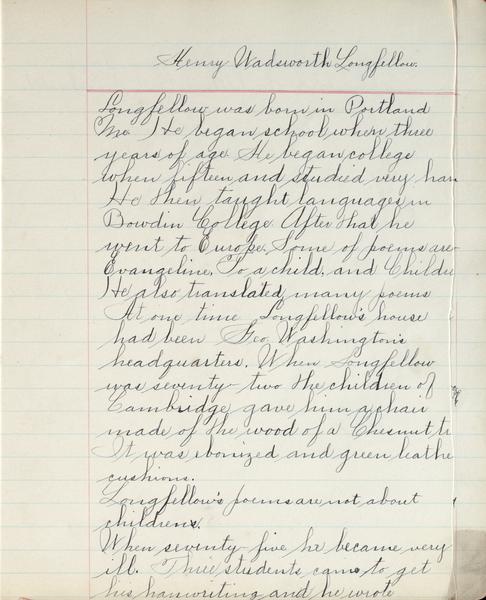 Henry Wadsworth Longfellow.
Longfellow was born in Portland
Me. He began school when three
years of age. He began college
when fifteen and studied very har
He then taught languages in
Bowdin College. After that he
went to Europe. Some of poems are
Evangeline, To a child, and Childre
He also translated many poems
At one time Longfellow's house
had been Geo. Washington's
headquarters. When Longfellow
was seventy-two the children of
Cambridge gave him a chair
made of the wood of a Chesnut tr
It was ebonized and green leathe
cushions.
Longfellow's poems are not about
childrens.
When seventy-five he became very
ill. Three students came to get
his hanwriting and he wrote